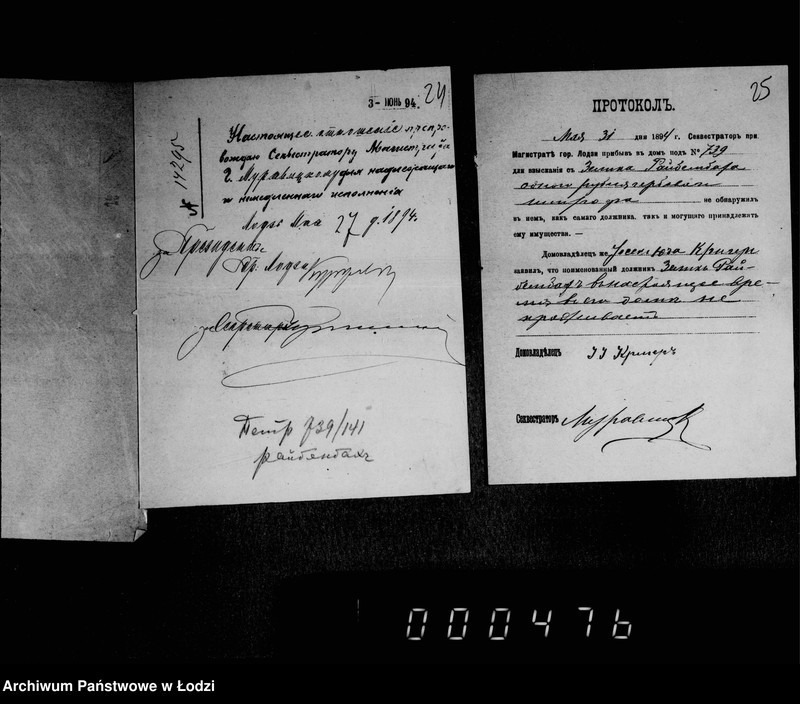 3- ІЮНЬ 94.
24
№ 14295
Настоящее отношение препро-
вождаю Секвестратору Магистрата
Г. Муравицкому для надлежащаго
и немедленнаго исполнения
Лодзь Мая 27 д. 1894.
за Президентъ
Гор. Лодзи
за Секретарь
Петр 739/141
Райбенбахъ
25
ПРОТОКОЛЪ.
Мая 31 дня 1894 г. Секвестраторъ при
Магистратѣ гор. Лодзи прибывъ въ домъ подъ № 739
для взысканія съ
одного рубля гербоваго
штрафа не обнаружилъ
въ немъ, какъ самого должника, такъ и могущаго принадлежать
ему имущества. —
Домовладѣлецъ же Кригеръ
заявилъ, что поименованный должникъ Рай-
въ настоящее вре-
мя въ его домѣ не
проживаетъ
Домовладѣлецъ І І Кригеръ
Секвестраторъ
000476
Archiwum Państwowe w Łodzi